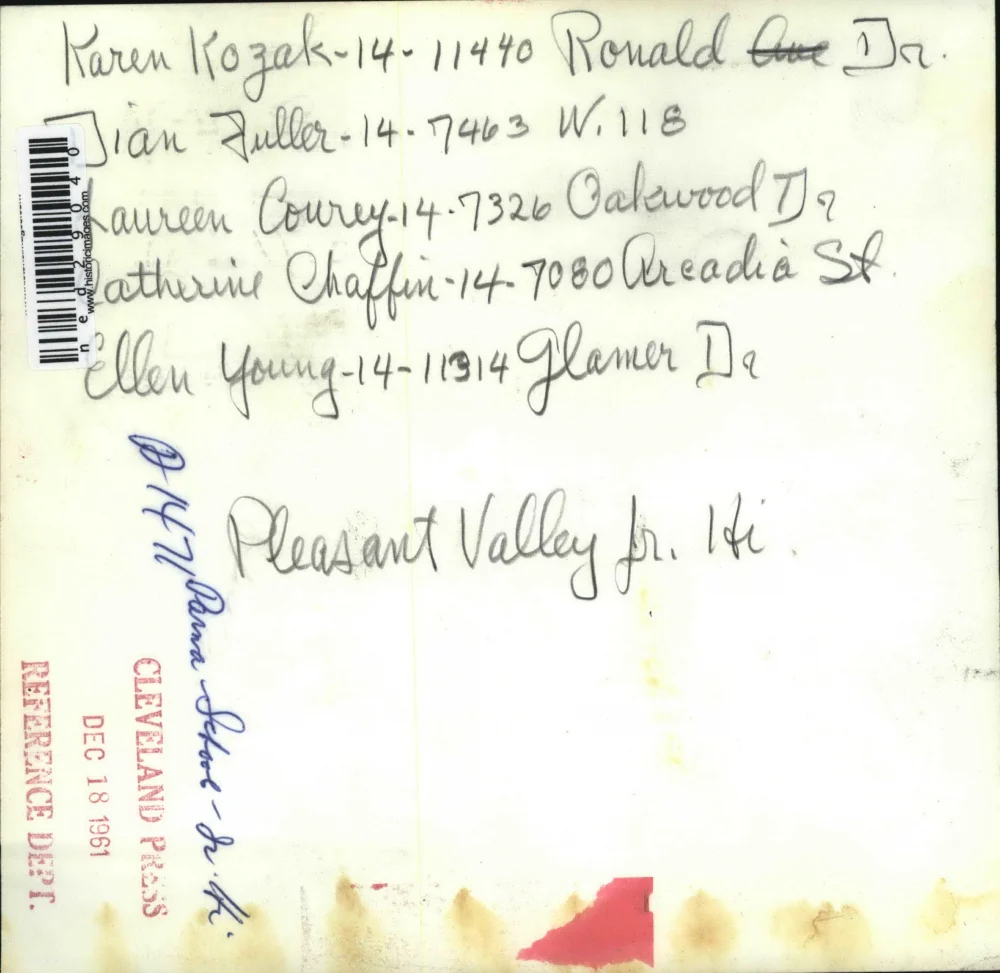 Karen Kozak-14-11440 Ronald Ave Dr.
Dian Fuller-14-7463 W. 118
Laureen Courey-14-7326 Oakwood Dr
Catherine Chaffin-14-7080 Arcadia St.
Ellen Young-14-11314 Glamer Dr
Pleasant Valley Jr. Hi.
D 1471 Parma-School-Jr. Hi.
CLEVELAND PRESS
DEC 18 1961
REFERENCE DEPT.
ned29040
www.historicimages.com